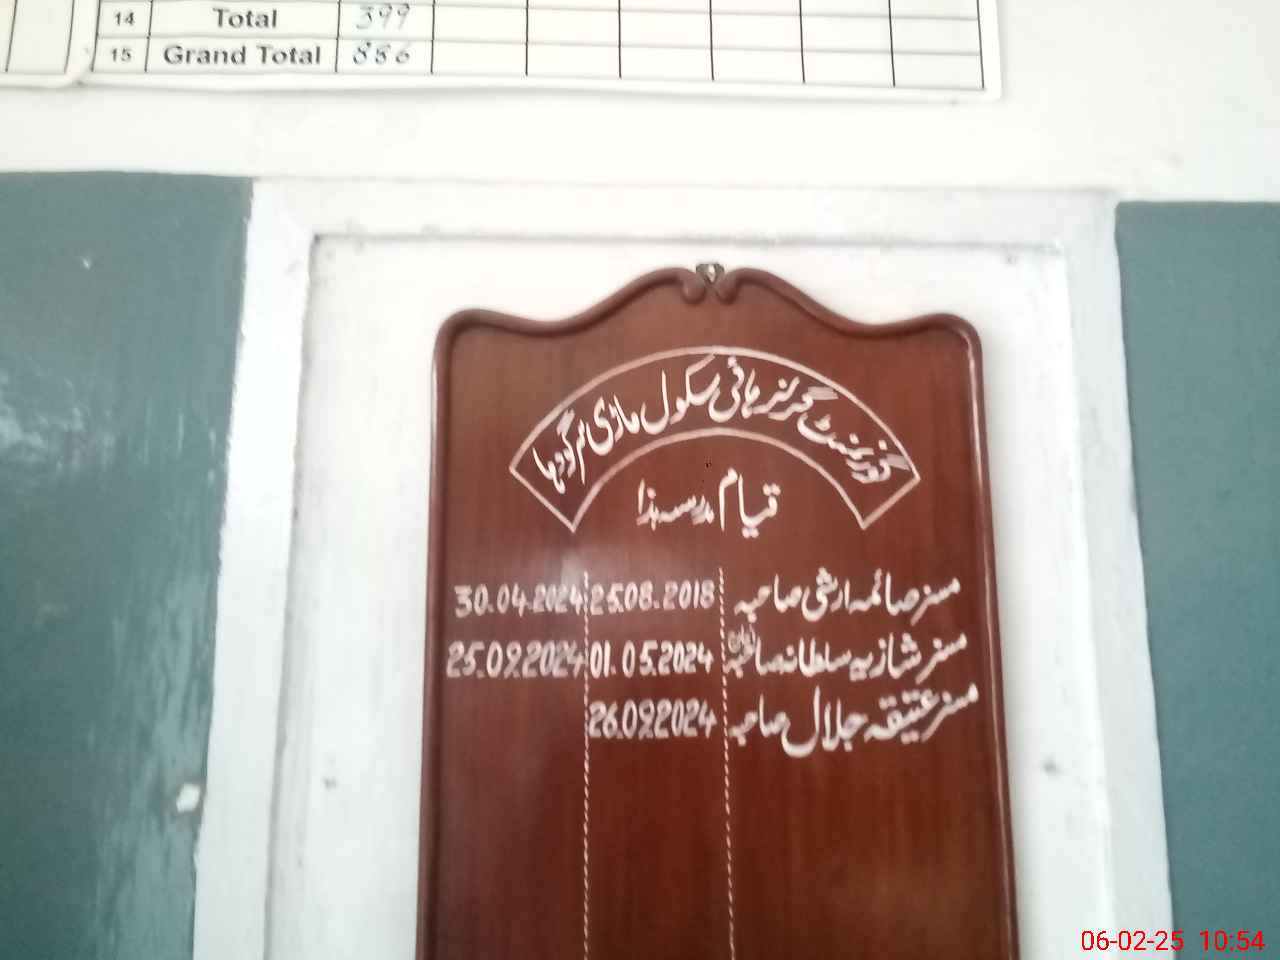 14 Total 399
15 Grand Total 886
گورنمنٹ گرلز ہائی سکول ماڑی سرگودہا
قیام مدرسہ ہذا
مسز صائمہ ارشی صاحبہ 25.08.2018 30.04.2024
مسز شازیہ سلطانہ صاحبہ 01.05.2024 25.09.2024
مسز عتیقہ جلال صاحبہ 26.09.2024
06-02-25 10:54